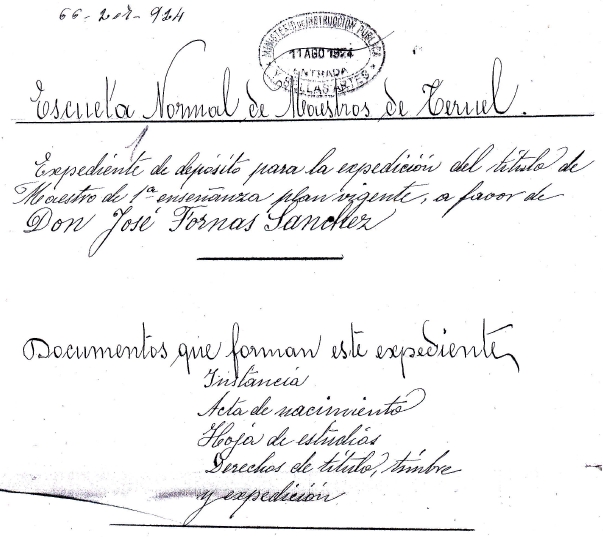 MINISTERIO DE INSTRUCCIÓN PÚBLICA
11 AGO 1924
ENTRADA
Y BELLAS ARTES
Escuela Normal de Maestros de Teruel.
Expediente de depósito para la expedición del título de
Maestro de 1ª enseñanza plan vigente, a favor de
Don José Fornas Sanchez
Documentos que forman este expediente
Instancia
Acta de nacimiento
Hoja de estudios
Derechos de título, timbre
y expedición